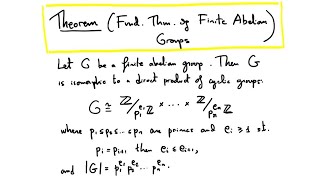 Theorem (Fund. Thm. of Finite Abelian
Groups)
Let G be a finite abelian group. Then G
is isomorphic to a direct product of cyclic groups:
G ≅ ℤ/p₁^{e₁}ℤ × ... × ℤ/pₙ^{eₙ}ℤ
where p₁≤p₂≤...≤pₙ are primes and eᵢ≥1 st.
pᵢ=pᵢ₊₁ then eᵢ≤eᵢ₊₁,
and |G|=p₁^{e₁}p₂^{e₂}...pₙ^{eₙ}.